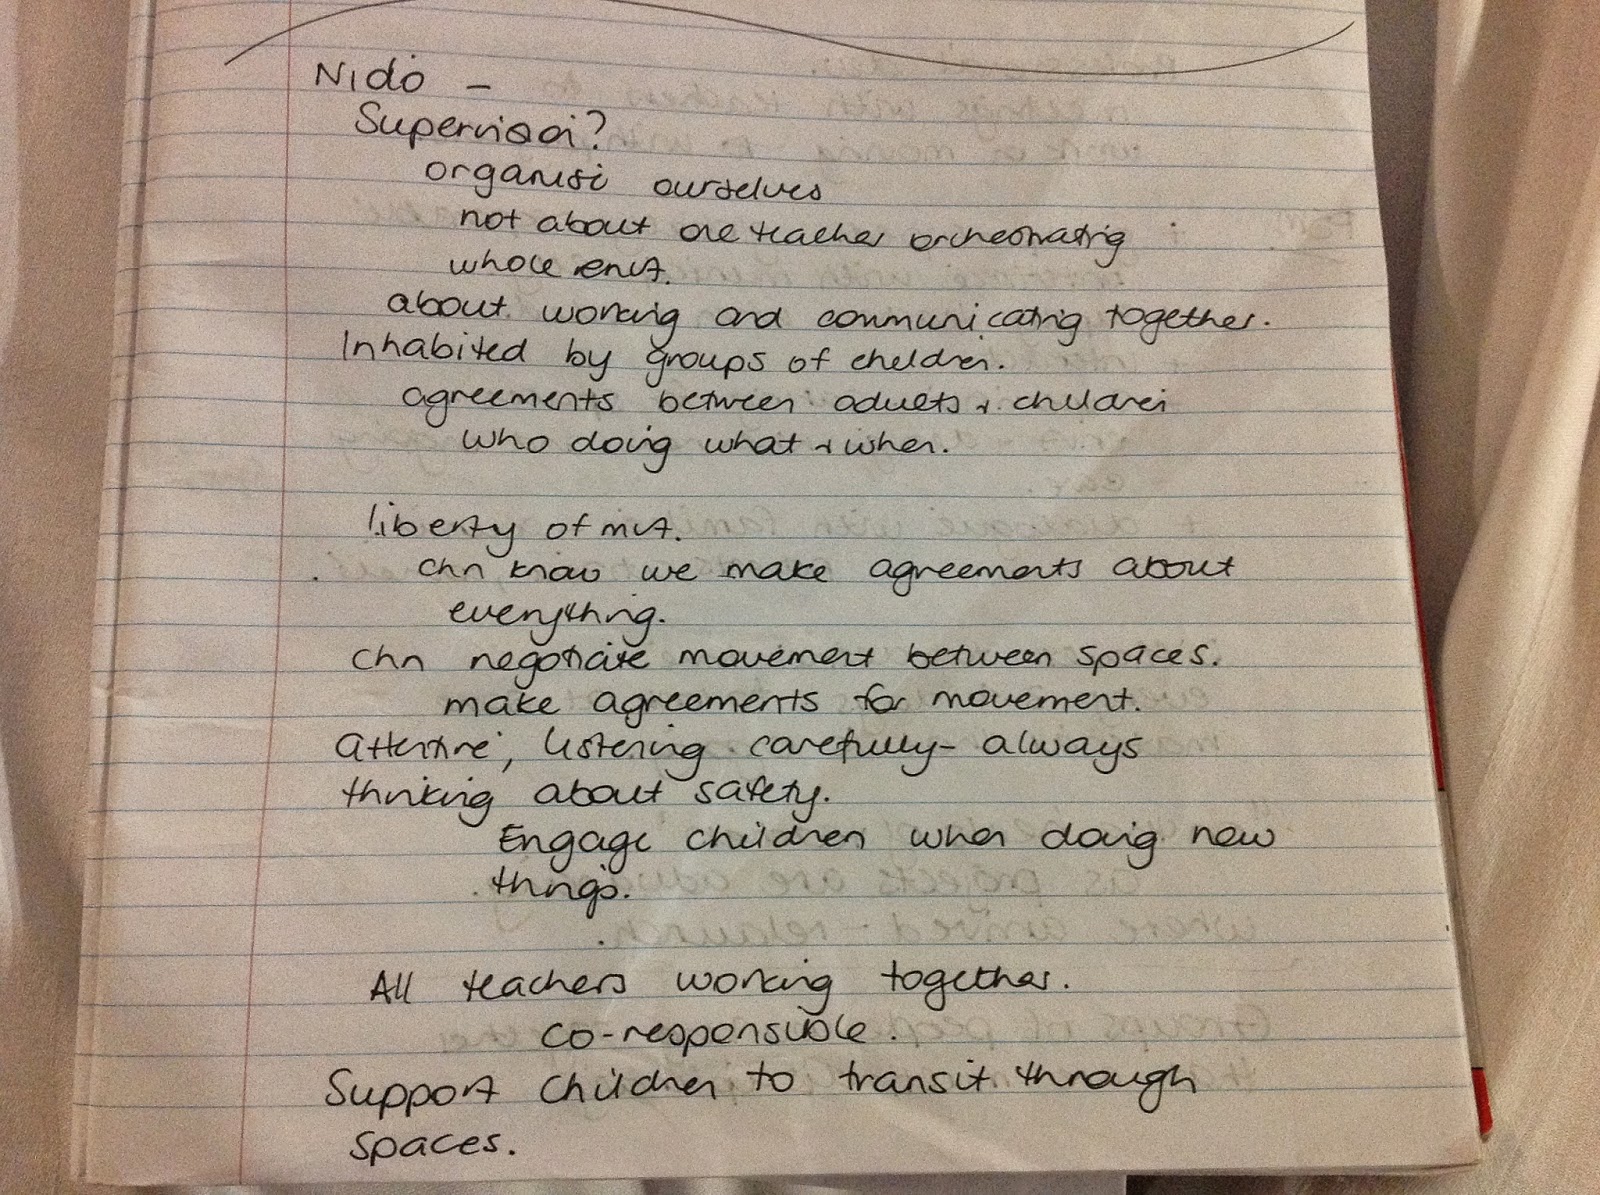 Nido -
Supervision?
organise ourselves
not about one teacher orchestrating
whole envt.
about working and communicating together.
Inhabited by groups of children.
agreements between adults + children
who doing what + when.
liberty of mvt.
chn know we make agreements about
everything.
chn negotiate movement between spaces.
make agreements for movement.
attentive, listening carefully - always
thinking about safety.
Engage children when doing new
things.
All teachers working together.
co-responsible.
Support children to transit through
spaces.